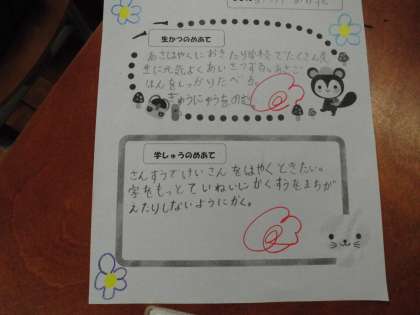 生かつのめあて
あさはやくにおきたり学校でたくさん先
生に元気よくあいさつする。あさご
はんをしっかりたべる
ぎゅうにゅうをのむ
学しゅうのめあて
さんすうでけいさんをはやくときたい。
字をもっとていねいにかくすうをまちが
えたりしないようにかく。